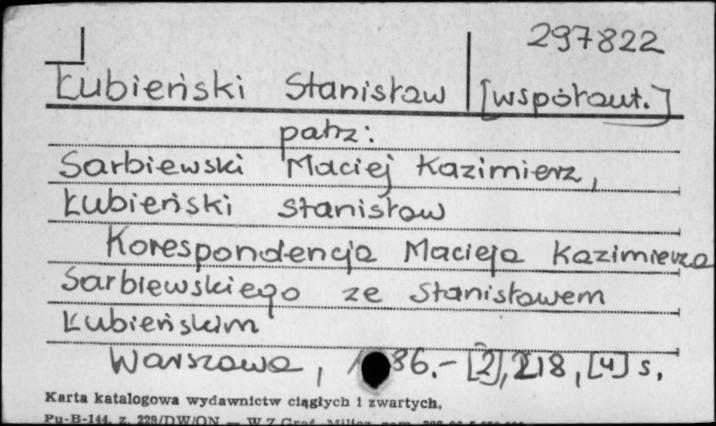 297822
Łubieński Stanisław [współaut.]
patrz:
Sarbiewski Maciej Kazimierz,
Łubieński Stanisław
Korespondencja Macieja Kazimierza
Sarbiewskiego ze Stanisławem
Łubieńskim
Warszawa, 1986.- [2], 218, [4] s.
Karta katalogowa wydawnictw ciągłych i zwartych,
Pu-B-144, z. 228/DW/ON — W.Z.Graf.